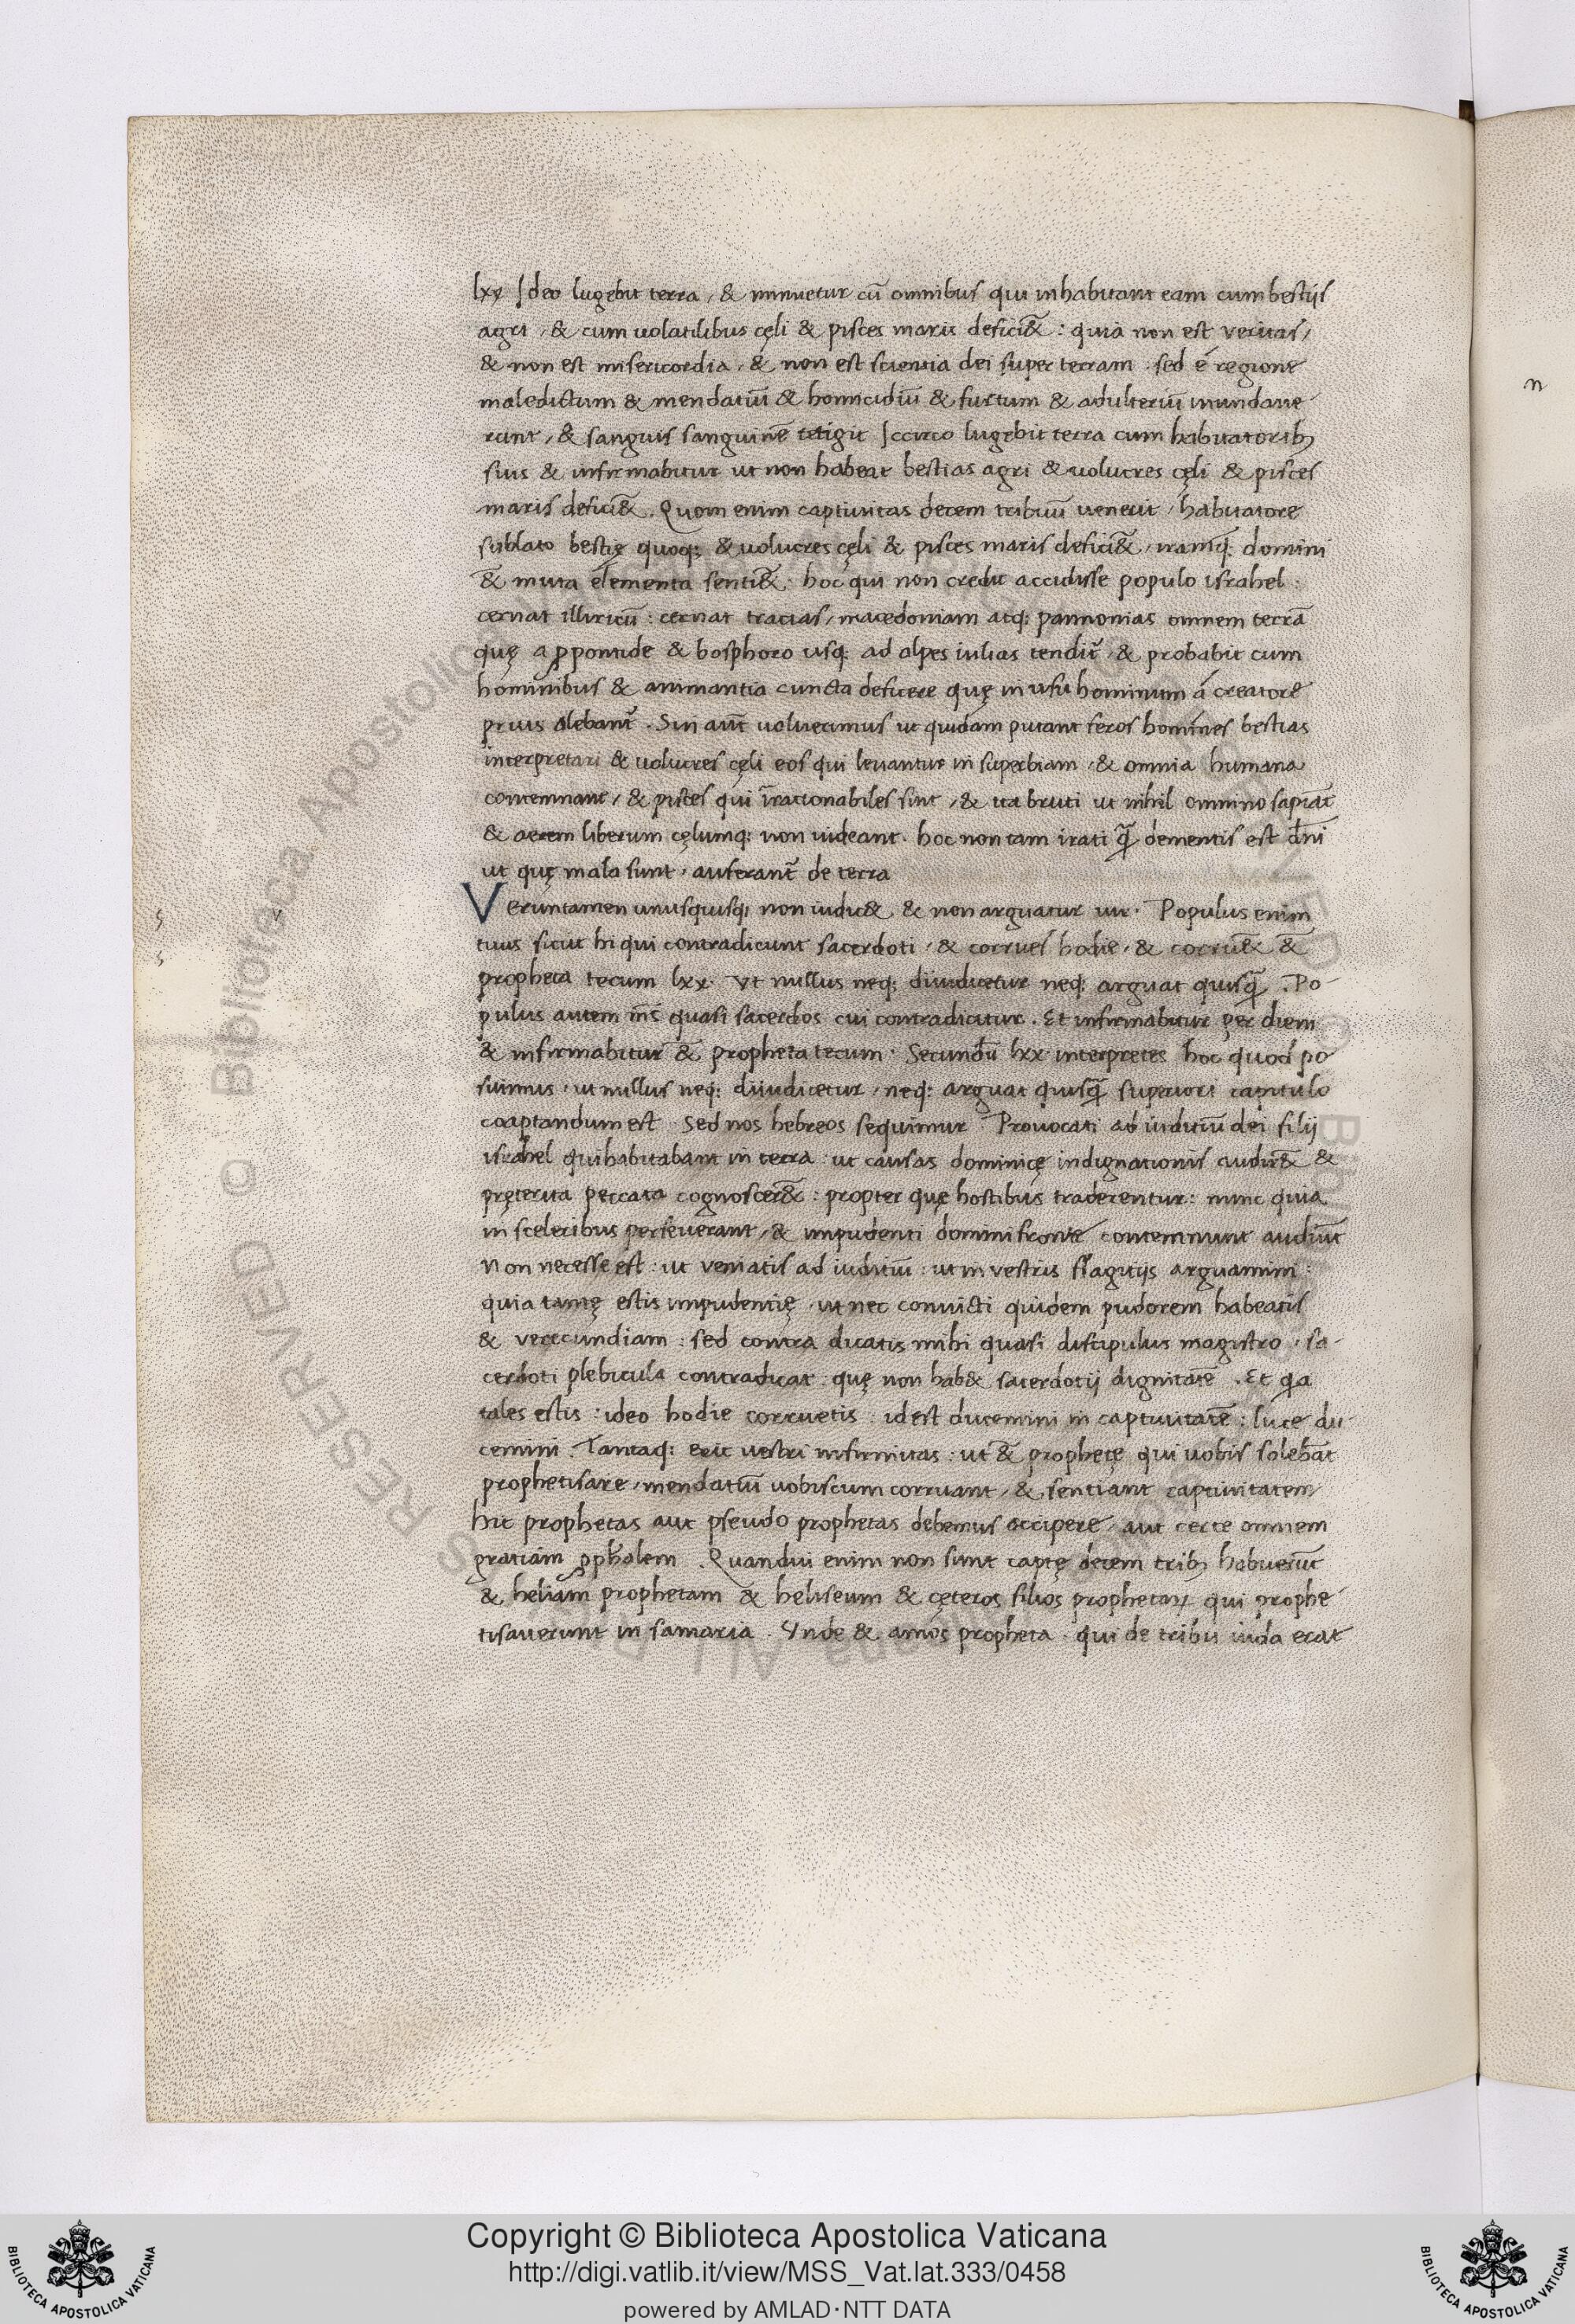 lxx Ideo lugebit terra, & minuetur cū omnibus qui inhabitant eam cum bestijs
agri, & cum uolatilibus cęli & pisces maris defici&̄: quia non est veritas,
& non est misericordia, & non est scientia dei super terram. sed é regione
maledictum & mendatiū & homicidiū & furtum & adulteriū inundaue-
runt, & sanguis sanguinē tetigit Iccirco lugebit terra cum habitatorib;
suis & infirmabitur ut non habeat bestias agri & uolucres cęli & pisces
maris defici&̄. Quom enim captiuitas decem tribuū uenerit, habitatore
sublato bestię quoq; & uolucres cęli & pisces maris defici&̄, iramq; domini
&̄ muta elementa senti&̄. hoc qui non credit accidisse populo israhel:
cernat illiricū: cernat tracias, macedoniam atq; pannonias omnem terrā
quę a ꝓpontide & bosphoro usq; ad alpes iulias tendit̄, & probabit cum
hominibus & animantia cuncta deficere quę in usu hominum á creatore
prius alebant̄. Sin aūt uoluerimus ut quidam putant feros homines bestias
interpretari & uolucres cęli eos qui leuantur in superbiam, & omnia humana
contemnant, & pisces qui īrationabiles sint, & ita bruti ut nihil omnino sapiāt
& aerem liberum cęlumq; non uideant. hoc non tam irati q̄ dementis est dn̄i
ut quę mala sunt, auferant̄ de terra
Veruntamen unusquisq; non iudic&, & non arguatur uir. Populus enim
tuus sicut hi qui contradicunt sacerdoti, & corrues hodie, & corru&̄ &̄
propheta tecum lxx. Vt nullus neq; diiudicetur neq; arguat quisq̄. Po-
pulus autem m̄s quasi sacerdos cui contradicitur. Et infirmabitur per diem
& infirmabitur &̄ propheta tecum. Secundū lxx interpretes hoc quod po
suimus, ut nullus neq; diiudicetur, neq; arguat quisq̄ superiori capitulo
coaptandum est. Sed nos hebreos sequimur. Prouocati ad iuditiū dei filij
israhel qui habitabant in terra: ut causas dominicę indignationis audir&̄ &
pręterita peccata cognoscer&̄: propter quę hostibus traderentur: nunc quia
in sceleribus perseuerant, & impudenti domini fronte contemnunt audiūt
Non necesse est: ut veniatis ad iuditiū: ut in vestris flagitijs arguamini:
quia tantę estis impudentię, ut nec conuicti quidem pudorem habeatis
& verecundiam: sed contra dicatis mihi quasi discipulus magistro, sa-
cerdoti plebicula contradicat: quę non hab& sacerdotij dignitatē. Et q̄a
tales estis: ideo hodie corruetis: idest ducemini in captiuitatē: luce du-
cemini. Tantaq; erit uestri infirmitas: ut &̄ prophetę qui uobis solebāt
prophetisare, mendatiū uobiscum corruant, & sentiant captiuitatem
hic prophetas aut pseudo prophetas debemus accipere, aut certe omnem
gratiam ꝓph̄alem. Quandiu enim non sunt captę decem trib; habuerūt
& heliam prophetam & heliseum & cęteros filios prophetaꝝ qui prophe-
tisauerunt in samaria. Vnde & amos propheta, qui de tribu iuda erat
v
n
Copyright © Biblioteca Apostolica Vaticana
http://digi.vatlib.it/view/MSS_Vat.lat.333/0458
powered by AMLAD·NTT DATA
BIBLIOTECA APOSTOLICA VATICANA
BIBLIOTECA APOSTOLICA VATICANA